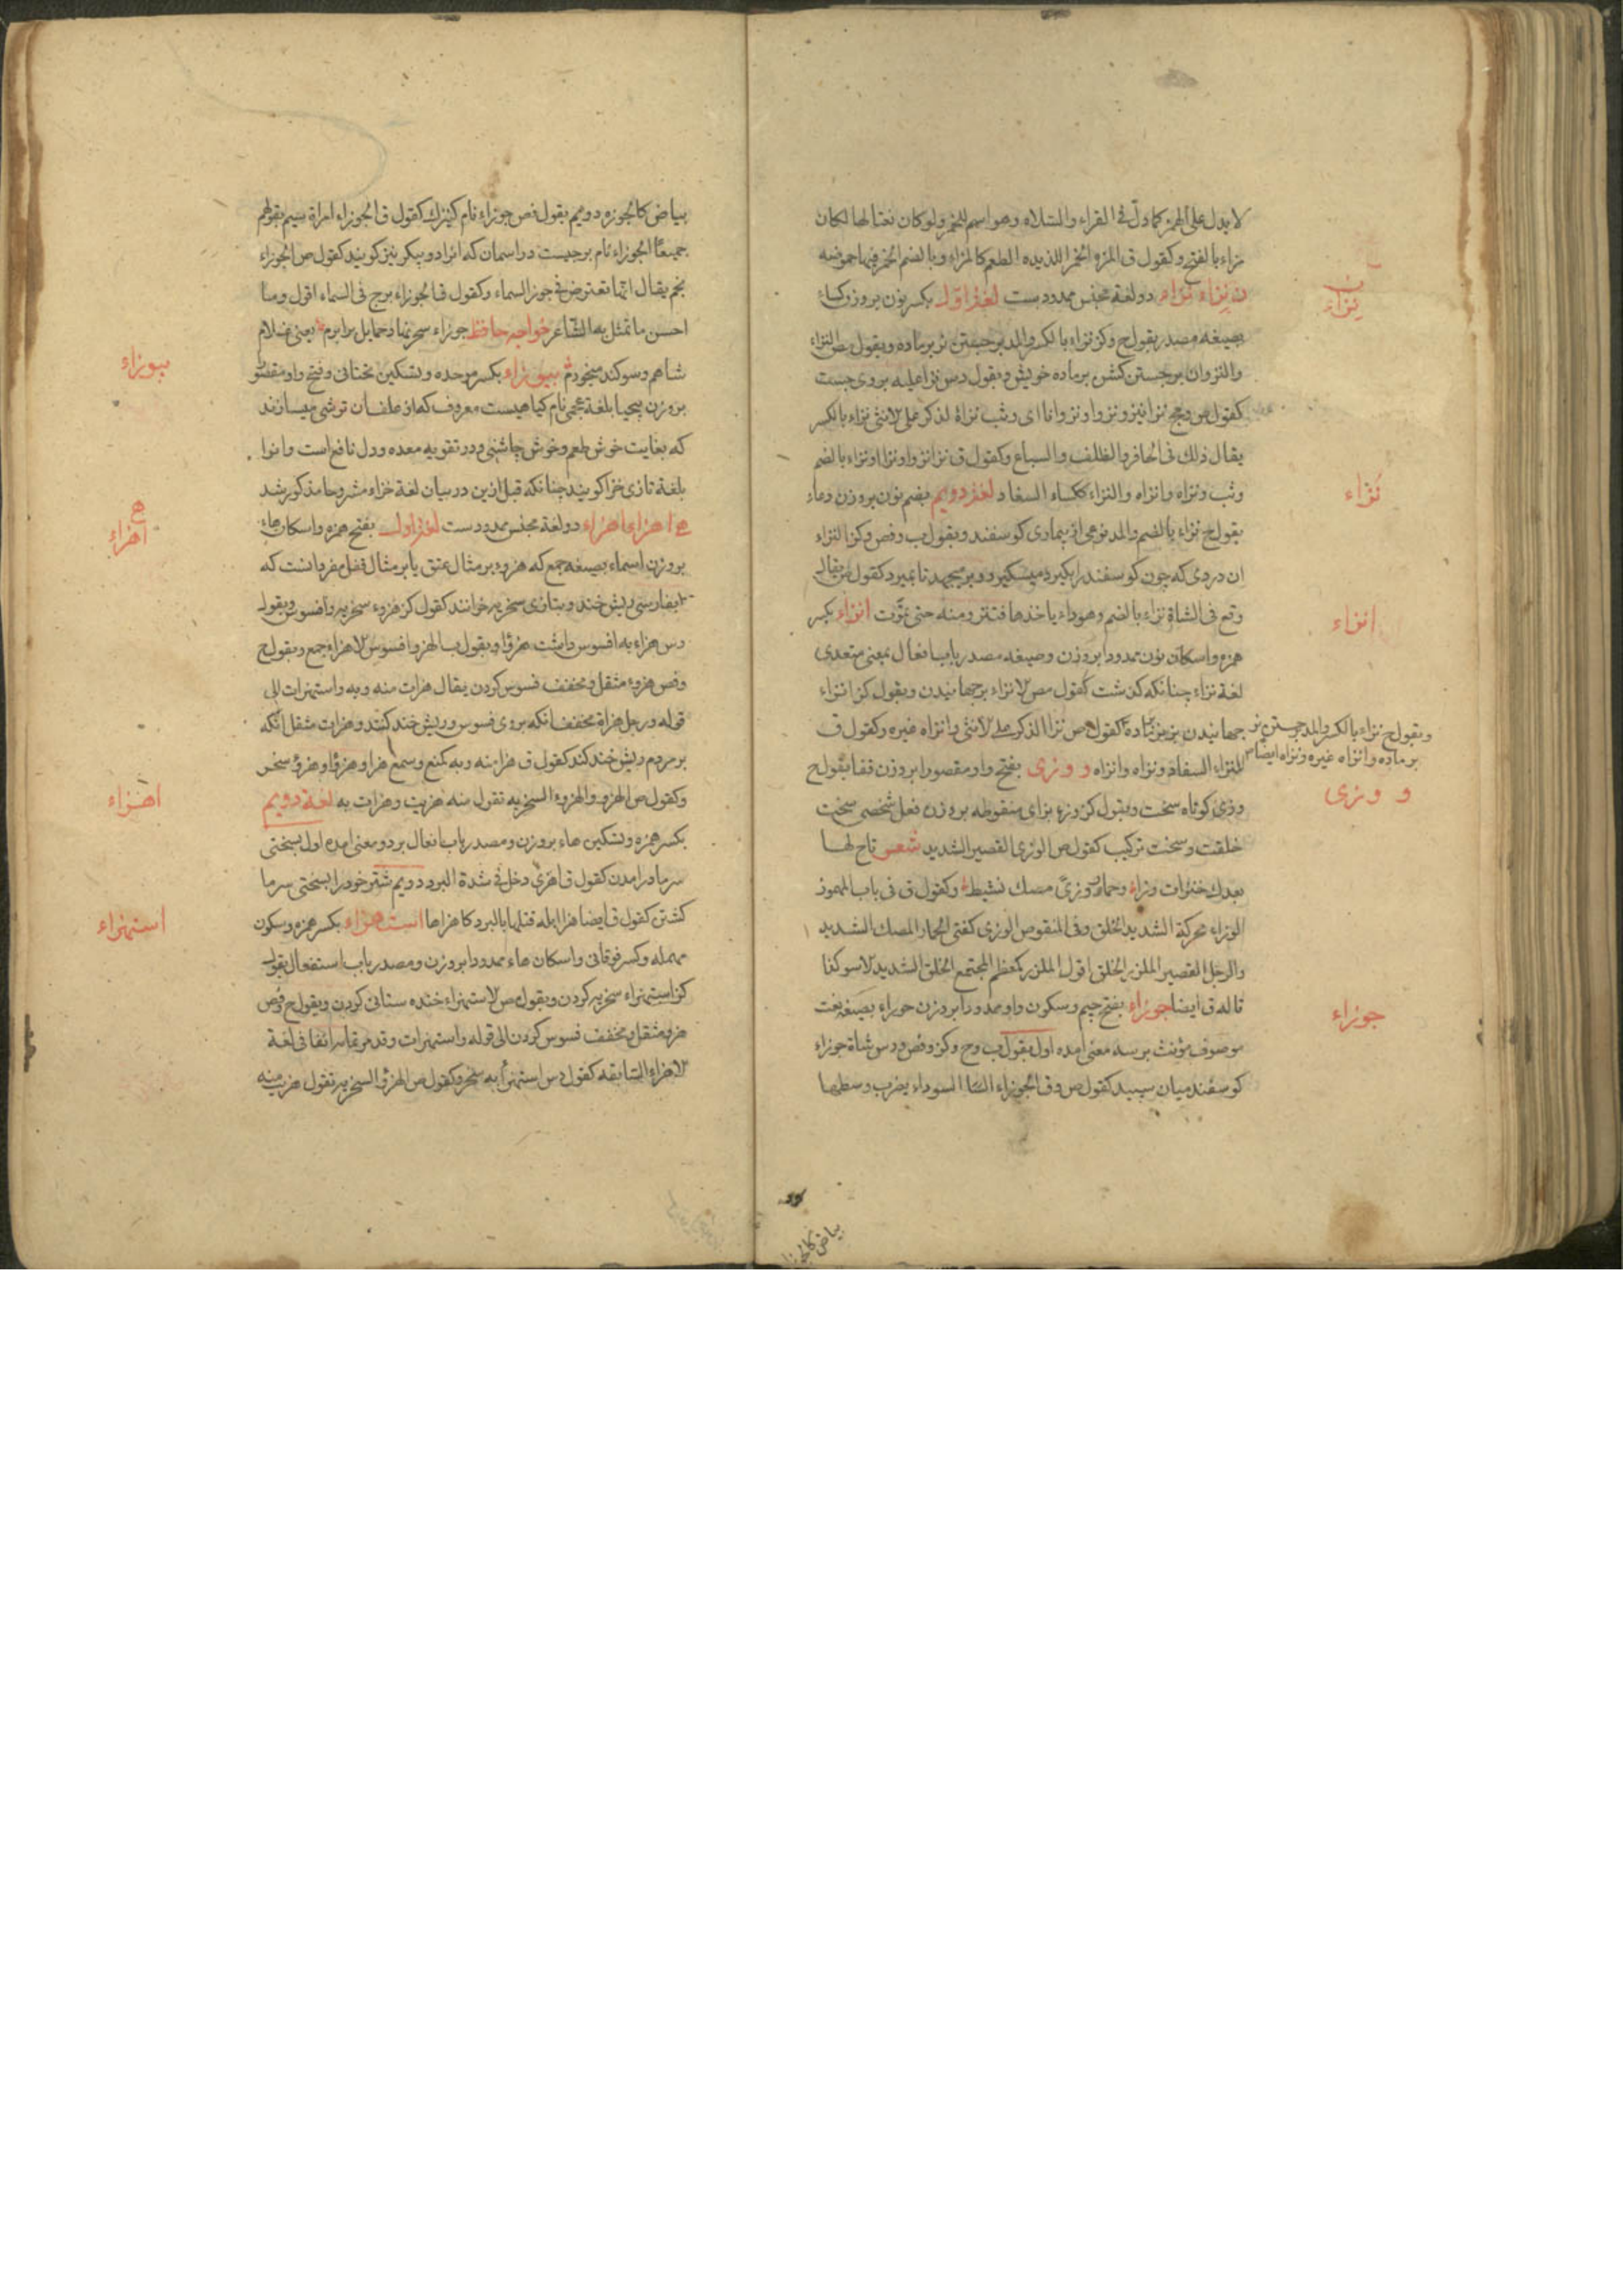 لا يدل على الهمز كما دل في القراء والسلاء وهو اسم للخمر ولو كان نعتا لها لكان
مزاء بالفتح وكقول ق المزو الخمر اللذيده الطعم كالمزاء وبالضم الخمر فيها حموضه
ن نزاء نزاء دو لغة مجنس ممدود ست لغة اول بكسر نون بروزن كساء
بصيغه مصدر بقول ح وكز نزاء بالكسر والمد برجستن نر بر ماده وبقول مص النزاء
والنزوان برجستن كشن بر ماده خويش وبقول دس نزا عليه بروى جست
كقول ص وجح نزا ينزو نزوا ونزوانا اى وثب نزاء الذكر على الانثى نزاء بالكسر
يقال ذلك فى الحافر والظلف والسباع وكقول ق نزا نزوا ونزاا ونزاء بالضم
وثب ونزاه وانزاه والنزاء ككساء السفاد لغة دويم بضم نون بروزن دعاء
بقول ح نزاء بالضم والمد نوعى از بيمارى كوسفند وبقول ب وفص وكز النزاء
ان دردى كه چون كوسفند را بكيرد ميسكيزد و برميجهد تا بميرد كقول ص يقال
وقع فى الشاة نزاء بالضم وهو داء ياخذها فتنزو منه حتى تموت انزاء بكسر
همزه واسكان نون ممدودا بروزن وصيغه مصدر باب افعال بمعنى متعدى
لغة نزاء چنانكه كذشت كقول مص الانزاء برجهانيدن وبقول كز انزاء
جهانيدن نر بر ماده كقول ص نزا الذكر على الانثى وانزاه غيره وكقول ق
النزاء السفاد ونزاه وانزاه و وزى بفتح واو مقصورا بروزن قفا بقول ح
وزى كوتاه سخت وبقول كز وزء بزاى منقوطه بروزن فعل شخصى سخت
خلقت وسخت تركيب كقول ص الوزى القصير الشديد شعر تاح لها
بعدك خنزاب وزاء وحمار وزى مصك نشيط وكقول ق فى باب المهموز
الوزاء محركة الشديد الخلق وفى المنقوص الوزى كفتى الحمار المصك الشديد
والرجل القصير الملزز الخلق اقول الملزز كمعظم المجتمع الخلق الشديد الاسر كذا
قاله ق ايضا جوزاء بفتح جيم وسكون واو ممدودا بروزن حوراء بصيغه نعت
موصوف مؤنث برسه معنى امده اول بقول ب وح وكز وفص ودس شاة جوزاء
كوسفند ميان سپيد كقول ص وق الجوزاء الشا السوداء يضرب وسطها
نزاء
نزاء
وبقول ح نزاء بالكسر والمد جستن نر
بر ماده وانزاه غيره ونزاه ايضا ص
انزاء
و وزى
جوزاء
بياض كالجوزه دويم بقول فص جوزاء نام كنيزك كقول ق الجوزاء امراة سيم بقولهم
جميعا الجوزاء نام برجيست در اسمان كه انرا دو پيكر نيز كويند كقول ص الجوزاء
نجم يقال انها تعترض فى جوز السماء وكقول ق الجوزاء برج فى السماء اقول وما
احسن ما تمثل به الشاعر خواجه حافظ جوزاء سحر نهاد حمايل برابرم يعنى غلام
شاهم وسوكند ميخورم بيوزاء بكسر موحده وتسكين تحتانى وفتح واو مقصور
بروزن بلغة عجمى نام كياهيست معروف كه از ان ترشى ميسازند
كه بغايت خوش طعم وخوش چاشنى ودر تقويه معده ودل نافع است وانرا
بلغة تازى خزا كويند چنانكه قبل ازين در بيان لغة خزاء مشروحا مذكور شد
ه اهزاء اهزاء دو لغة مجنس ممدود ست لغة اول بفتح همزه واسكان هاء
بروزن اسماء بصيغه جمع كه هزوء بر مثال عنق يا بر مثال قفل مفرد انست كه
بفارسى ريش خند وبتازى سخريه خوانند كقول كز هزوء سخريه وافسوس وبقول
دس هزاء به افسوس داشت هزؤا وبقول ب الهزو افسوس الاهزاء جمع وبقول ح
وفص هزوء مثقل ومخفف فسوس كردن يقال هزات منه وبه واستهزات الى
قوله ورجل هزاة مخففا انكه بروى فسوس وريش خند كنند وهزات مثقل انكه
بر مردم ريش خند كند كقول ق هزا منه وبه كمنع وسمع هزا وهزؤا وهزؤ سخر
وكقول ص الهزو والهزوء السخريه تقول منه هزيت وهزات به لغة دويم
بكسر همزه وتسكين هاء بروزن ومصدر باب افعال بر دو معنى امده اول بسختى
سرما درامدن كقول ق اهزى دخل فى شدة البرد دويم شتر خود را بسختى سرما
كشتن كقول ق ايضا هزا ابله قتلها بالبرد كاهزاها استهزاء بكسر همزه وسكون
مهمله وكسر فوقانى واسكان هاء ممدودا بروزن ومصدر باب استفعال بقول
كز استهزاء سخريه كردن وبقول مص الاستهزاء خنده ستانى كردن وبقول ح وفص
هزو مثقل ومخفف فسوس كردن الى قوله واستهزات وقد مر تمامه انفا فى لغة
الاهزاء السابقه كقول دس استهزأ به سخر وكقول ص الهزؤ السخريه تقول هزيت منه
بيوزاء
ه
اهزاء
اهزاء
استهزاء
بياض كالجوزه